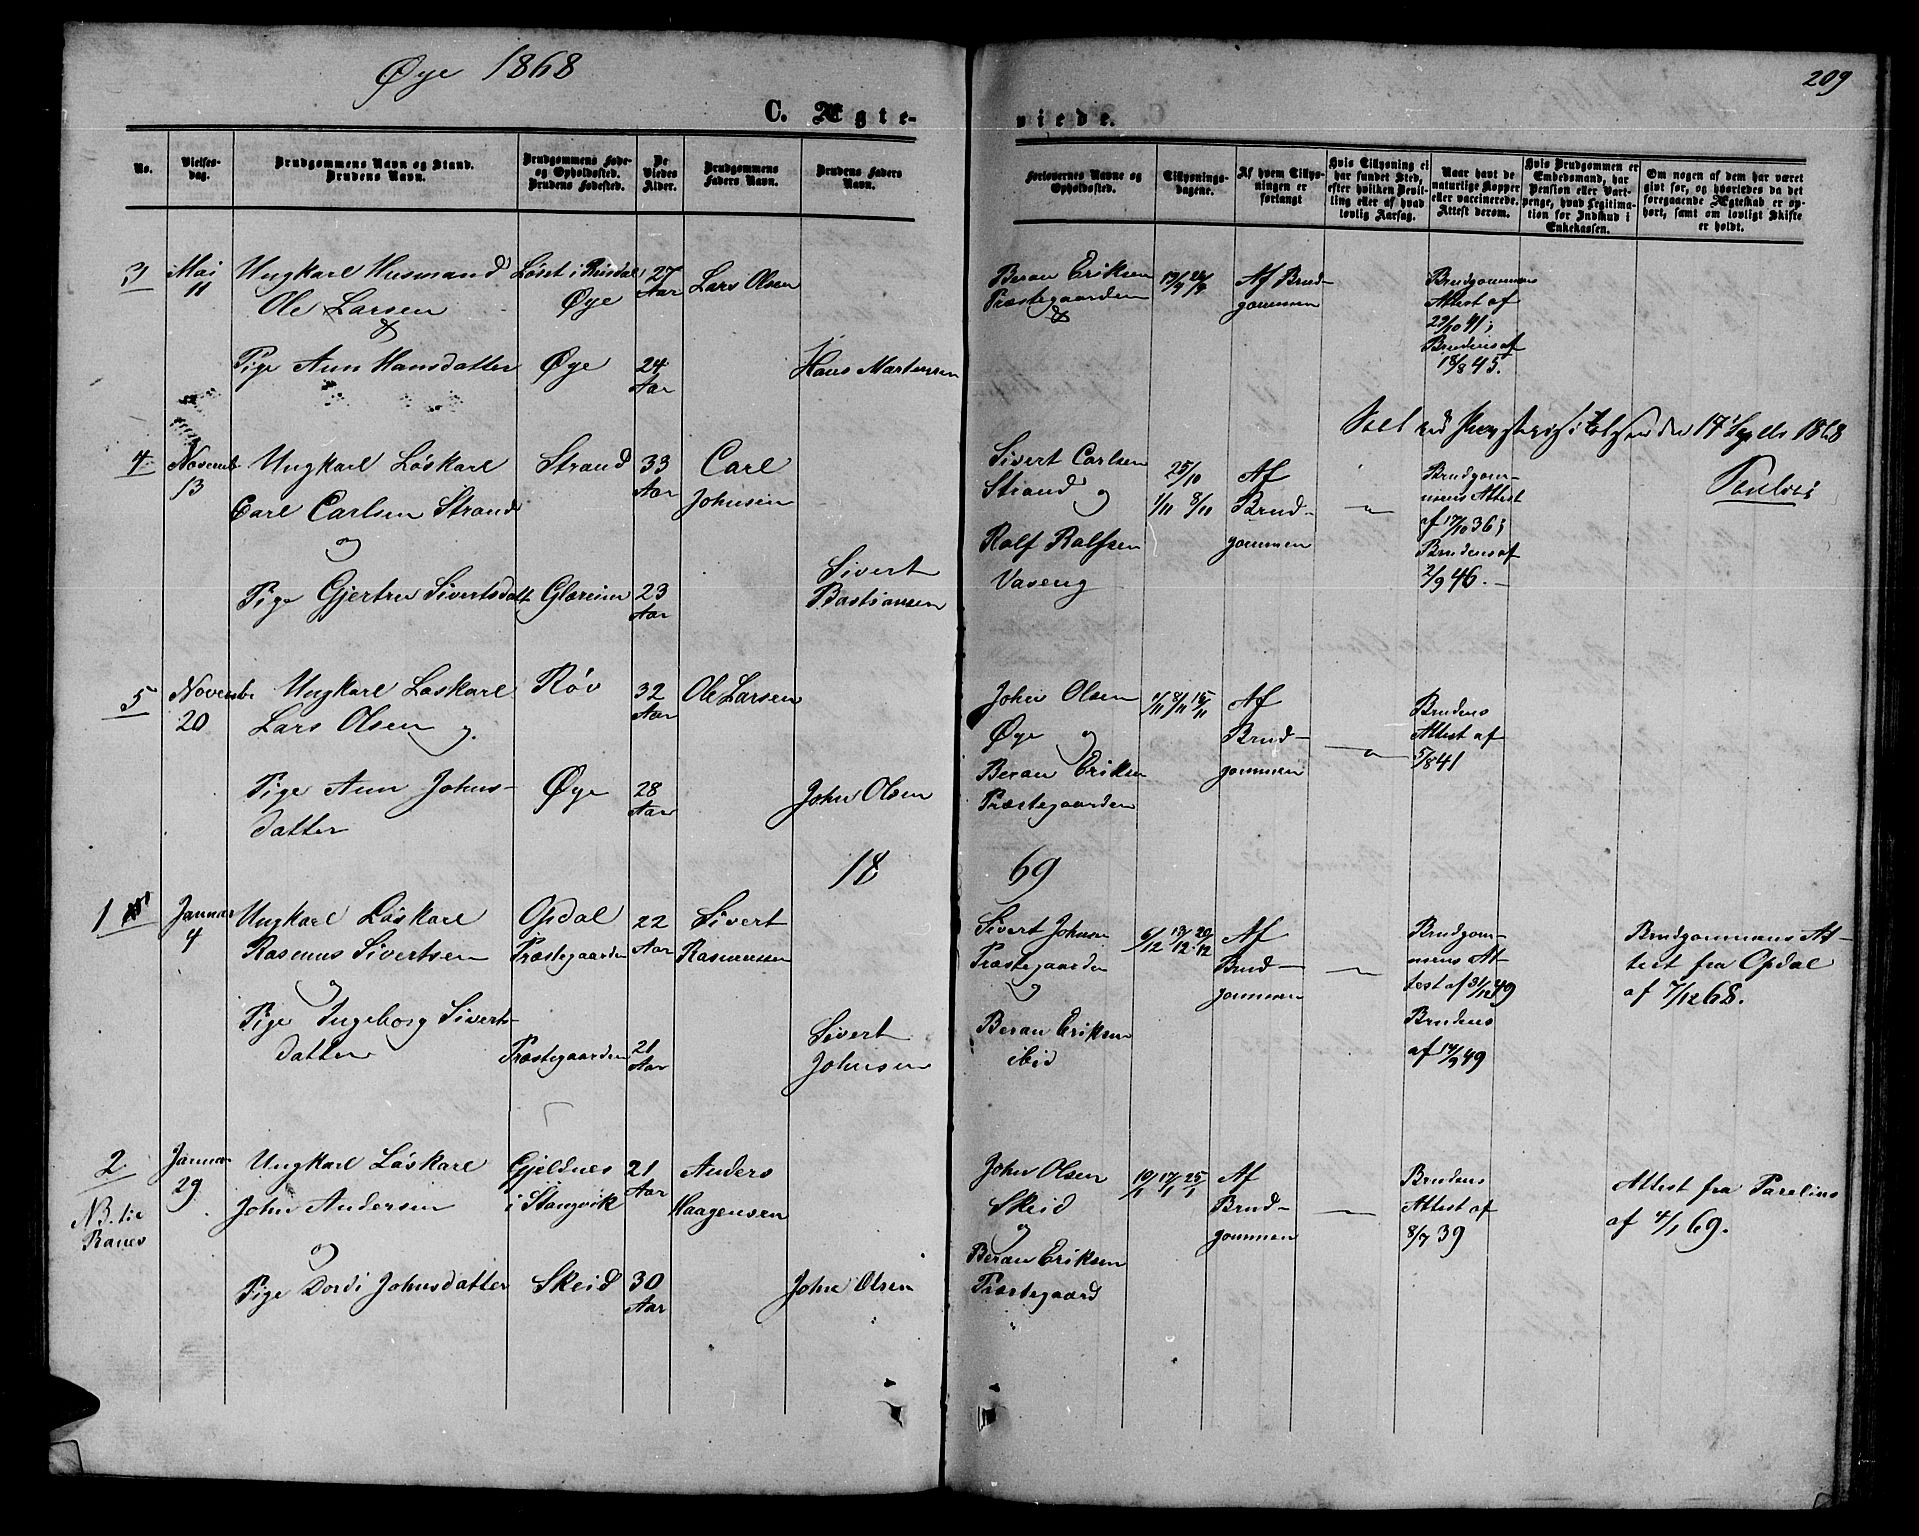 Øye 1868
209
C. Ægte-
viede.
No.
Vielses-
dag.
Brudgommens Navn og Stand.
Brudens Navn.
Brudgommens Føde-
og Opholdssted.
Brudens Fødested.
De
Viedes
Alder.
Brudgommens
Faders Navn.
Brudens Faders
Navn.
Forlovernes Navne og
Opholdssted.
Tillysnings-
dagene.
Af hvem Tillys-
ningen er
forlangt
Hvis Tillysning ei
har fundet Sted,
efter hvilken Bevil-
ling eller af hvad
lovlig Aarsag.
Naar havt de
naturlige Kopper
eller vaccinerede.
Attest derom.
Hvis Brudgommen er
Embedsmand, har
Pension eller Vart-
penge, hvad Legitima-
tion for Indskud i
Enkekassen.
Om nogen af dem har været
gift før, og hvorledes da det
foregaaende Ægteskab er op-
hørt, samt om lovligt Skifte
er holdt.
3
Mai
11
Ungkarl Husmand
Ole Larsen
&
Pige Ann Hansdatter
Løset i Rindal
Øye
Øye
27
Aar
24
Aar
Lars Olsen
Hans Martensen
Beran Eriksen
Præstegaarden
&
Af Brud-
gommen
Brudgommens
Attest af
23/10 41;
Brudens af
18/8 45.
1868
4
Novemb
13
Ungkarl Løskarl
Carl Carlsen Strand
og
Pige Gjertru Sivertsdatt
Strand
Glærem
33
Aar
23
Aar
Carl
Johnsen
Sivert
Bastiansen
Sivert Carlsen
Strand og
Rolf Rolfsen
Vaseng
25/10
1/11 8/11
Af
Brud-
gommen
Brudgom-
mens Attest
af 17/10 36;
Brudens af
2/9 46.
5
Novembe
20
Ungkarl Løskarl
Lars Olsen og
Pige Ann Johns-
datter
Røv
Øye
32
Aar
28
Aar
Ole Larsen
John Olsen
John Olsen
Øye og
Beran Eriksen
Præstegaarden
1/11 8/11 15/11
Af
Brud-
gommen
Brudens
Attest af
5/8 41
18
69
1
Januar
4
Ungkarl Løskarl
Rasmus Sivertsen
og
Pige Ingeborg Siverts-
datter
Opdal
Præstegaarden
Præstegaarden
22
Aar
21
Aar
Sivert
Rasmussen
Sivert
Johnsen
Sivert Johnsen
Præstegaarden
og
Beran Eriksen
ibid
6/12 13/12 20/12
Af
Brud-
gommen
Brudgom-
mens At-
test af 31/12 49
Brudens
af 14/9 49
Brudgommens At-
test fra Opdal
af 7/12 68.
2
NB. tie
Ranes
Januar
29
Ungkarl Løskarl
John Andersen
og
Pige Dordi Johnsdatter
Gjeldnes
i Stangvik
Skeid
21
Aar
30
Aar
Anders
Haagensen
John Olsen
John Olsen
Skeid
og
Beran Eriksen
Præstegaard
10/1 17/1 25/1
Af
Brud-
gommen
Brudens
Attest af
8/7 39
Attest fra Parelius
af 4/1 69.